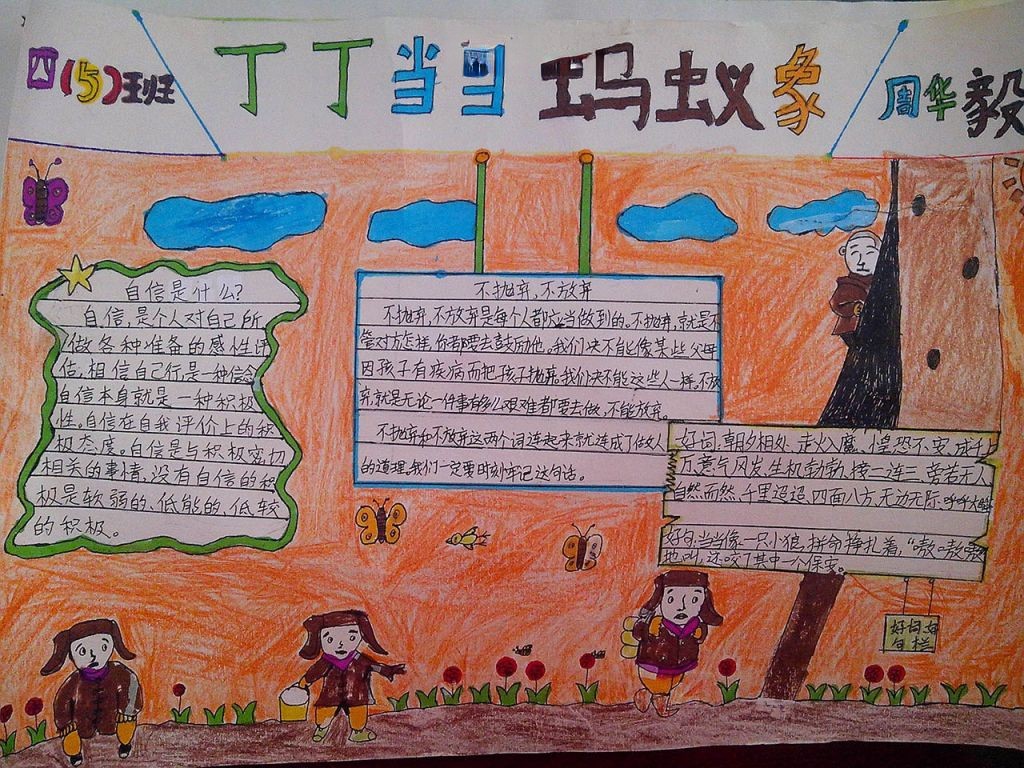 四(5)班
丁丁当当 蚂蚁象
周华毅
自信是什么?
自信,是个人对自己所
做各种准备的感性评
估。相信自己行,是一种信念
自信本身就是一种积极
性。自信在自我评价上的积
极态度。自信是与积极密切
相关的事情,没有自信的积
极是软弱的、低能的、低较
的积极。
不抛弃,不放弃
不抛弃,不放弃是每个人都应当做到的。不抛弃,就是不
管对方怎样,你都要去鼓励他。我们决不能像某些父母
因孩子有疾病而把孩子抛弃。我们决不能这些人一样。不放
弃,就是无论一件事有多么艰难都要去做,不能放弃。
不抛弃和不放弃这两个词连起来就造成了做人
的道理。我们一定要时刻牢记这句话。
好词:朝夕相处、走火入魔、惶恐不安、成千上
万、意气风发、生机勃勃、接二连三、旁若无人
自然而然、千里迢迢、四面八方、无边无际、呼呼大睡
好句:当当像一只小狼,拼命挣扎着,“嗷嗷嗷
地叫,还咬了其中一个保安。
好词好
句栏